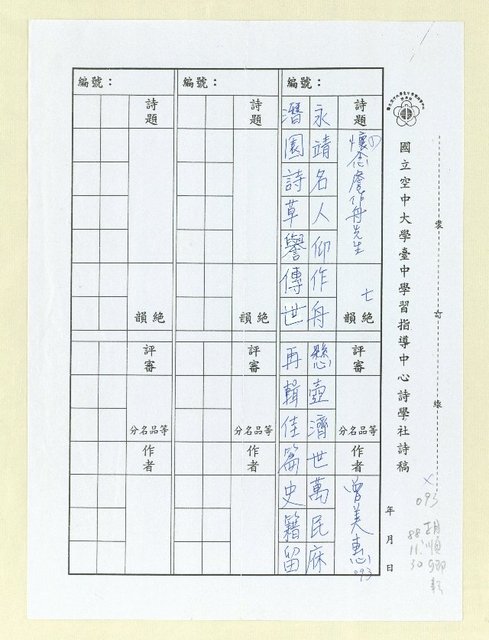 國立空中大學臺中學習指導中心詩學社詩稿
年 月 日
裝 訂 線
編號：
詩題
①懷念詹作舟先生
七絕
韻
評審
等品名分
作者
曾美惠 093
永靖名人仰作舟
懸壺濟世萬民庥
潛園詩草譽傳世
再輯佳篇史籍留
編號：
詩題
絕
韻
評審
等品名分
作者
編號：
詩題
絕
韻
評審
等品名分
作者
093
88
11
30